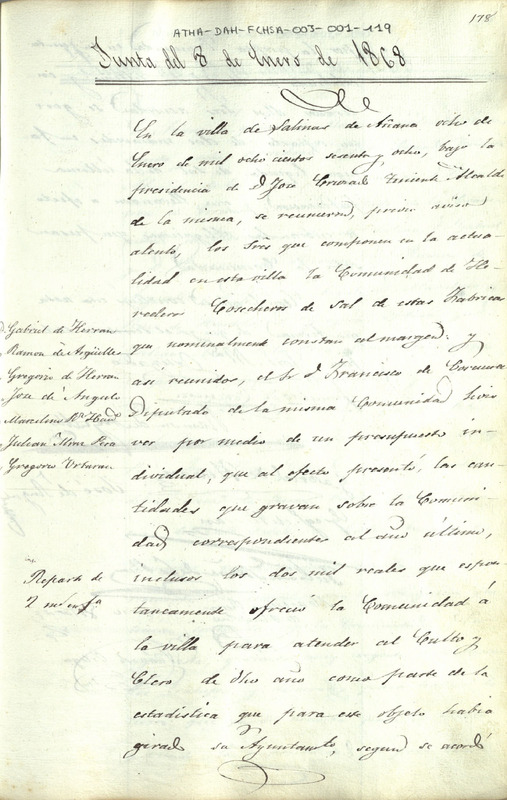 178
ATHA-DAH-FCHSA-003-001-119
Junta del 8 de Enero de 1868
En la villa de Salinas de Añana ocho de
Enero de mil ocho cientos sesenta y ocho, bajo la
presidencia de D. Jose Teniente Alcalde
de la misma, se reunieron, previo aviso
atento, los Sres que componen en la actua-
lidad en esta villa la Comunidad de He-
rederos Cosecheros de Sal de estas Fabricas
que nominalmente constan al margen: y
asi reunidos, el Sr D. Francisco de Corcuera
Diputado de la misma Comunidad hizo
ver por medio de un presupuesto in-
dividual, que al efecto presentó, las can-
tidades que gravan sobre la Comuni-
dad correspondientes al año último,
inclusos los dos mil reales que espon-
taneamente ofreció la Comunidad á
la villa para atender al Culto y
Clero de dho año como parte de la
estadistica que para este objeto habia
girado su Ayuntamto, segun se acordó
D. Gabriel de Herran
Ramon de Argüelles
Gregorio de Herran
Jose de Angulo
Marcelino
Julian
Gregorio Urturan
Reparto de
2 mil